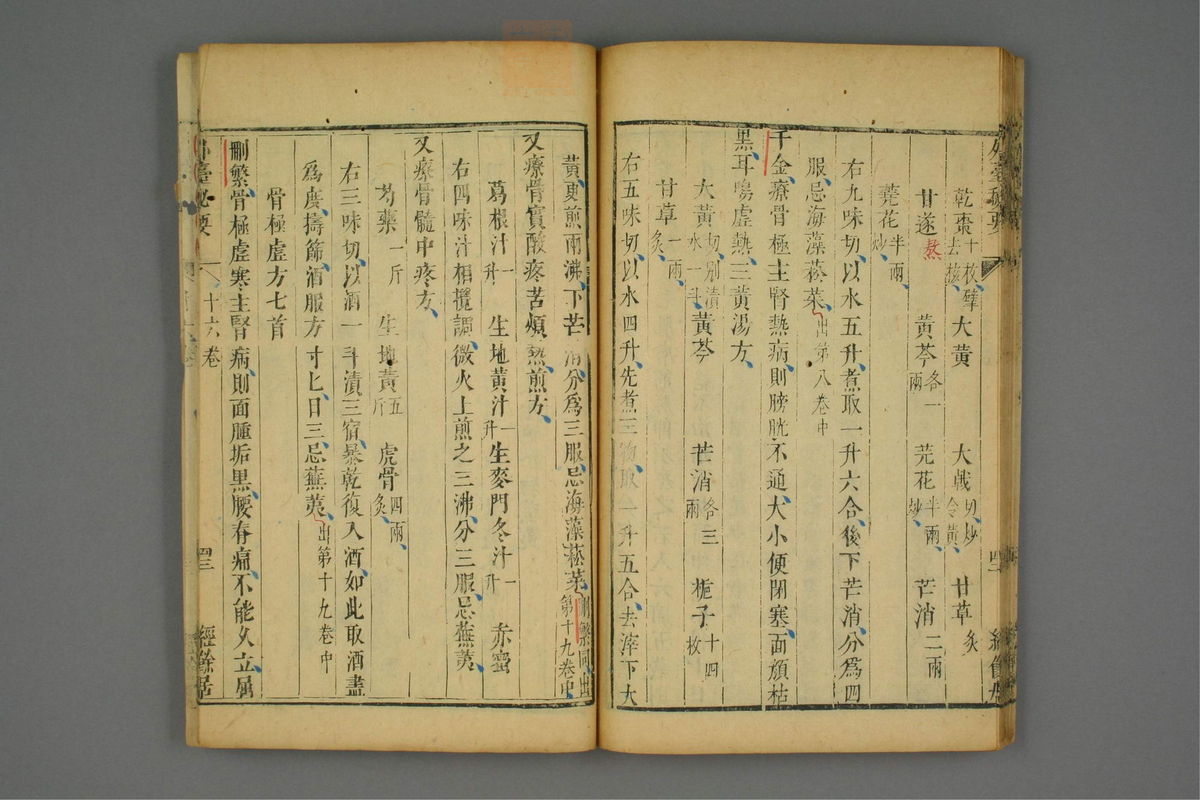 外臺秘要
四二
乾棗十枚擘去核 大黃 大戟切炒令黃 甘草炙
甘遂熬 黃芩各一兩 芫花半兩炒 芒消二兩
蕘花半兩炒
右九味切以水五升煮取一升六合後下芒消分爲四
服忌海藻菘菜出第八卷中
千金療骨極主腎熱病則膀胱不通大小便閉塞面顏枯
黑耳鳴虛熱三黃湯方
大黃切別漬水一斗 黃芩 芒消各三兩 梔子十四枚
甘草一兩炙
右五味切以水四升先煮三物取一升五合去滓下大
黃更煎兩沸下芒消分爲三服忌海藻菘菜刪繁同出第十九卷中
又療骨實酸疼苦煩熱煎方
葛根汁一升 生地黃汁一升 生麥門冬汁一升 赤蜜
右四味汁相攪調微火上煎之三沸分三服忌蕪荑
又療骨髓中疼方
芍藥一斤 生地黃五斤 虎骨四兩炙
右三味切以酒一斗漬三宿暴乾復入酒如此取酒盡
爲度擣篩酒服方寸匕日三忌蕪荑出第十九卷中
骨極虛方七首
刪繁骨極虛寒主腎病則面腫垢黑腰脊痛不能久立屈
外臺秘要
十六卷
四三
經餘居